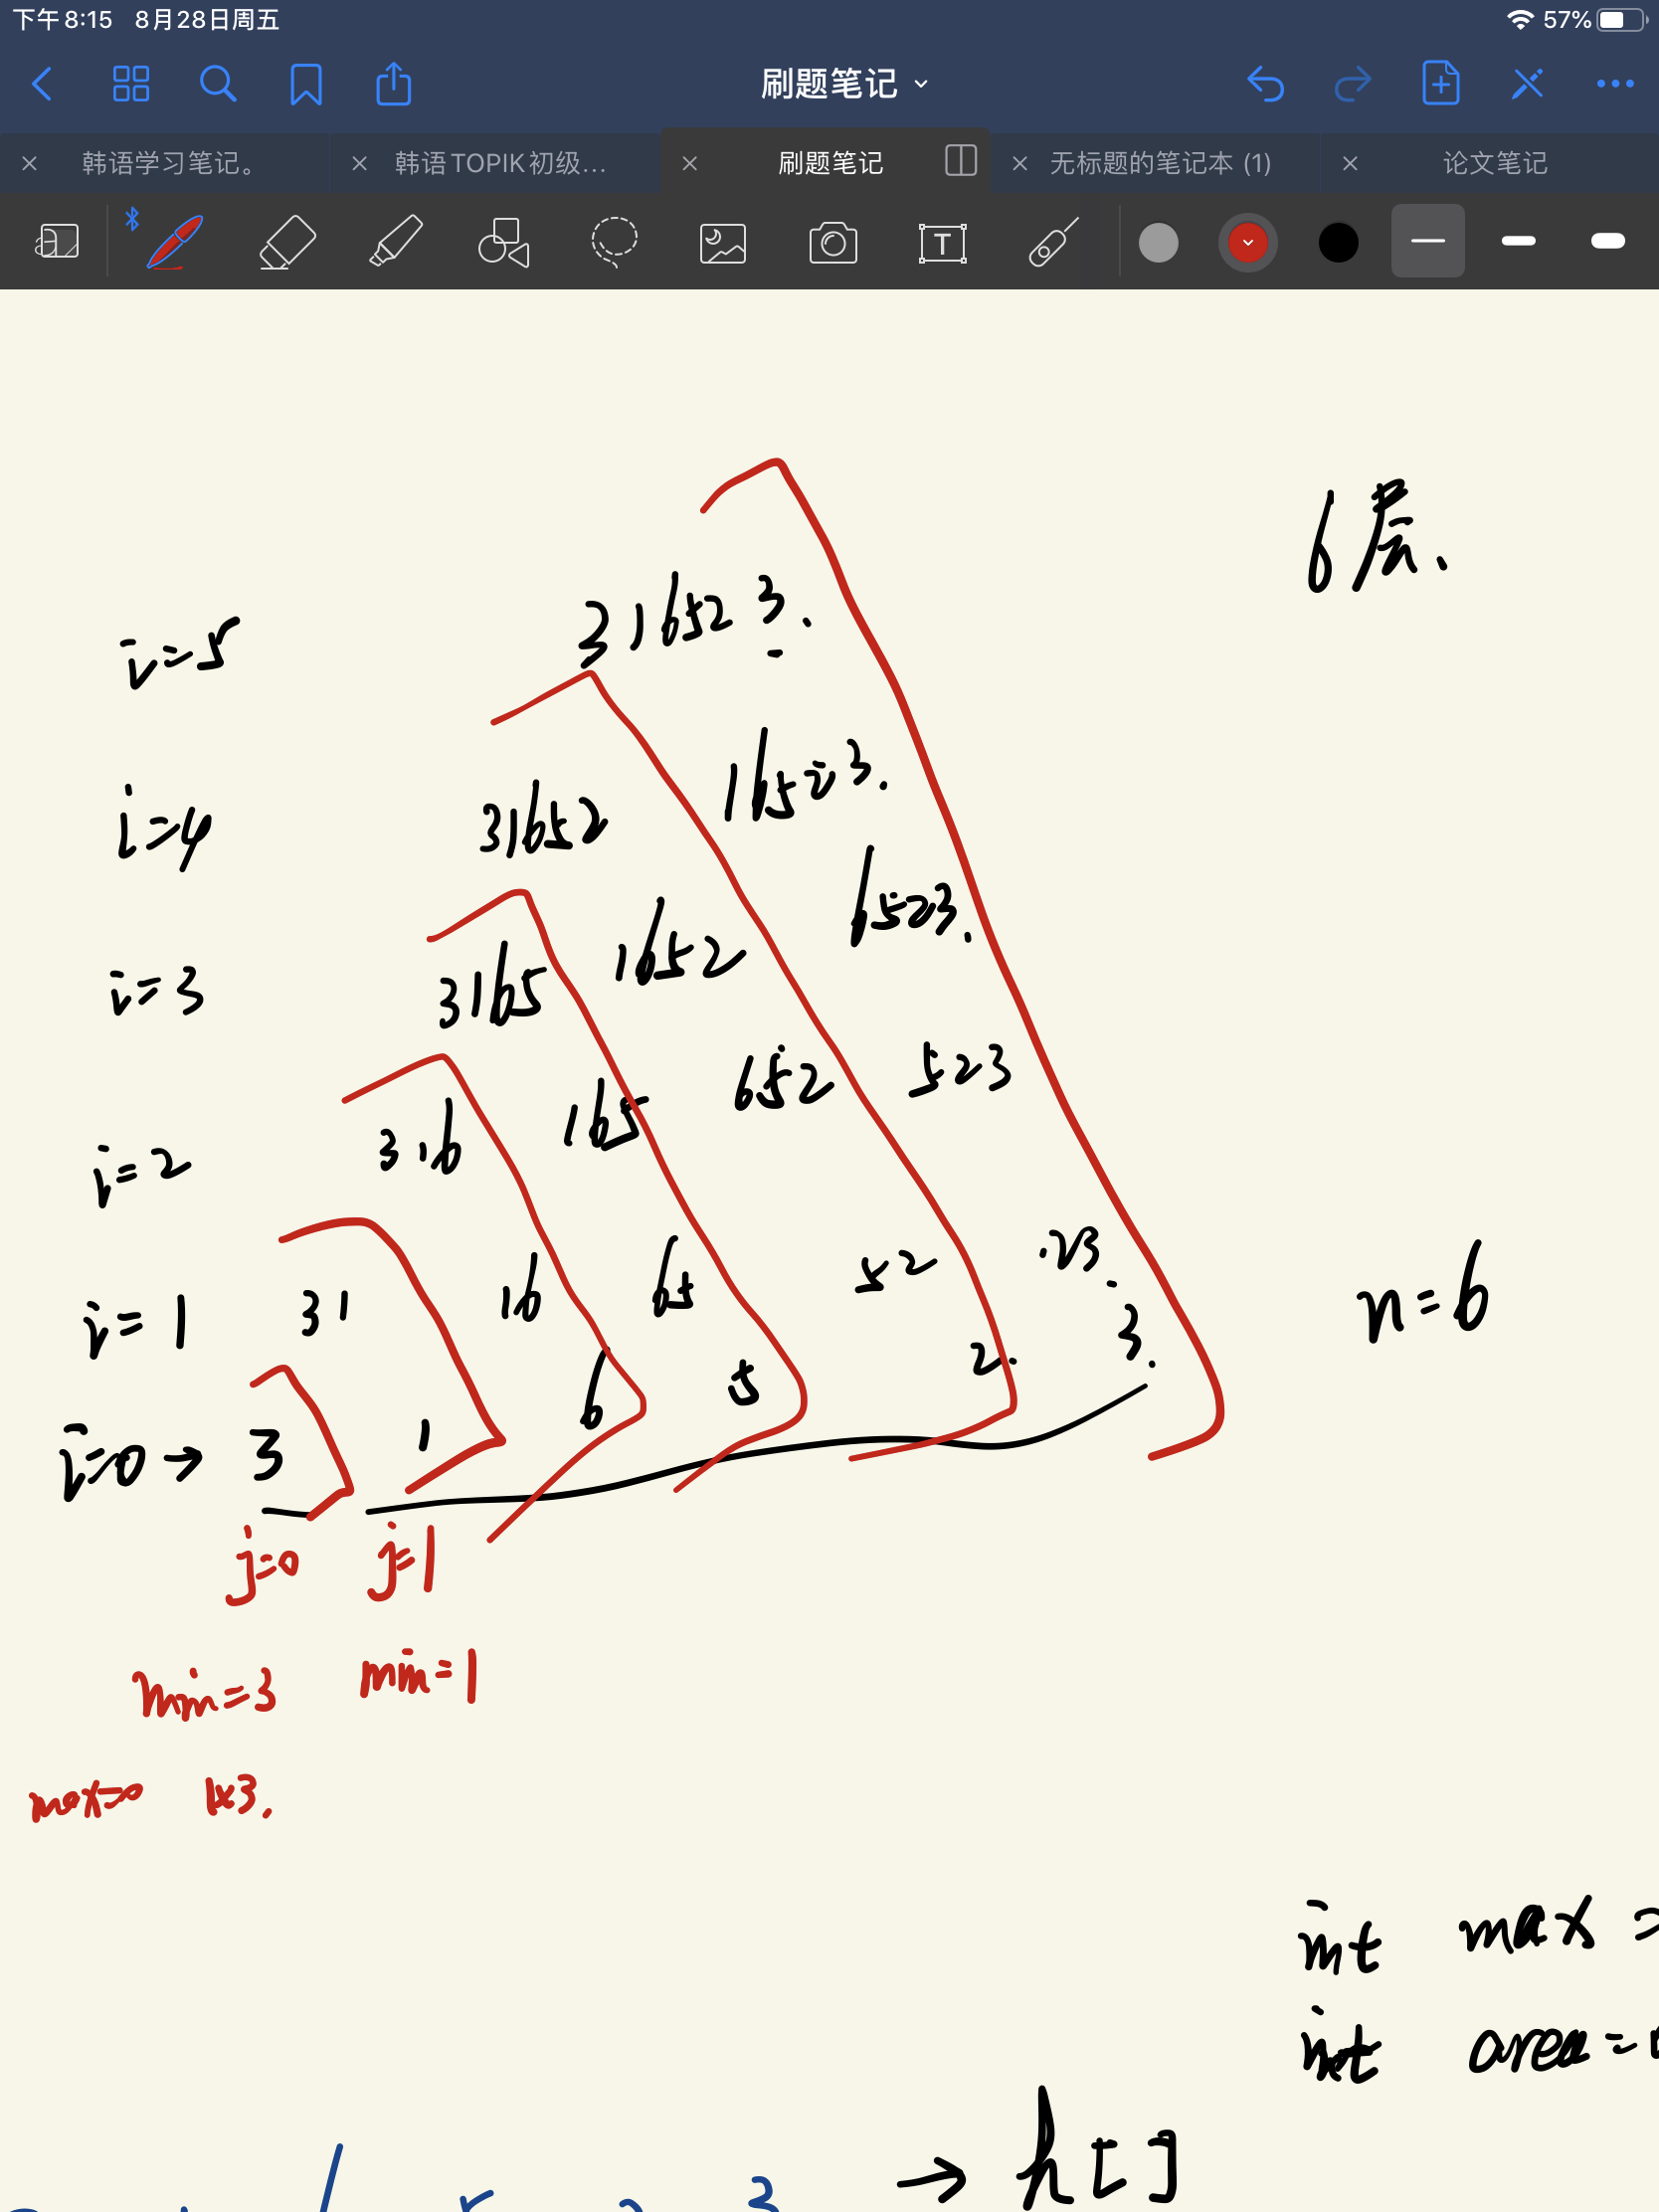 下午8:15 8月28日周五 57%
刷题笔记
韩语学习笔记。 韩语TOPIK初级... 刷题笔记 无标题的笔记本 (1) 论文笔记
T
6层.
i=5 31652 3.
i=4 31652 16523.
i=3 3165 1652 6523.
i=2 316 165 652 523
i=1 31 16 65 52 .23.
n=6
i=0→ 3 1 6 5 2. 3.
j=0 j=1
min=3 min=1
max=0 1×3.
int max =
int area=
→ h[]
3